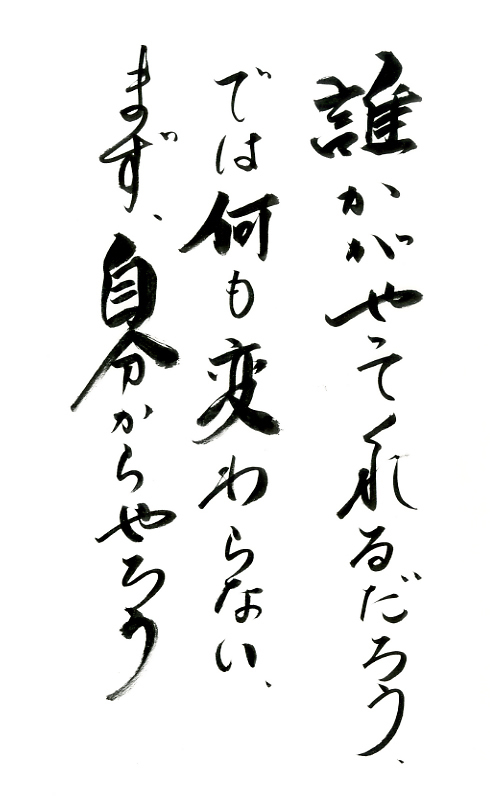 誰かがやってくれるだろう、
では何も変わらない、
まず、自分からやろう